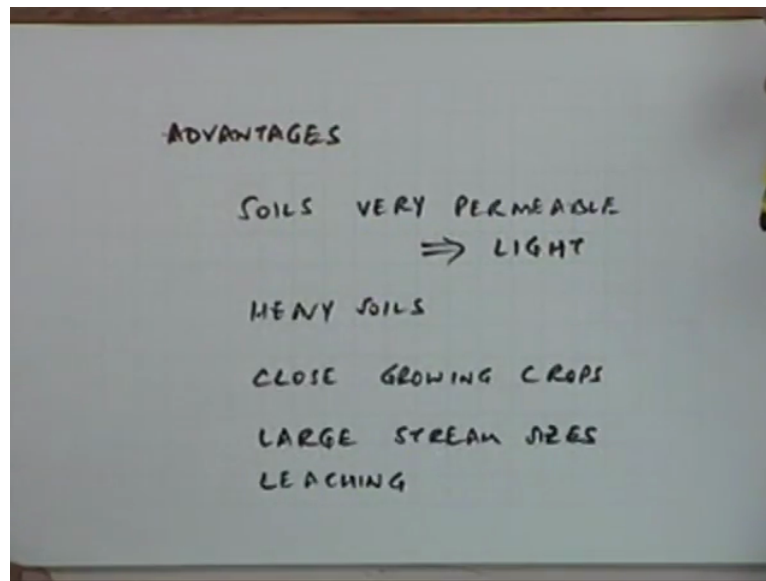 ADVANTAGES
SOILS VERY PERMEABLE
⇒ LIGHT
HEAVY SOILS
CLOSE GROWING CROPS
LARGE STREAM SIZES
LEACHING